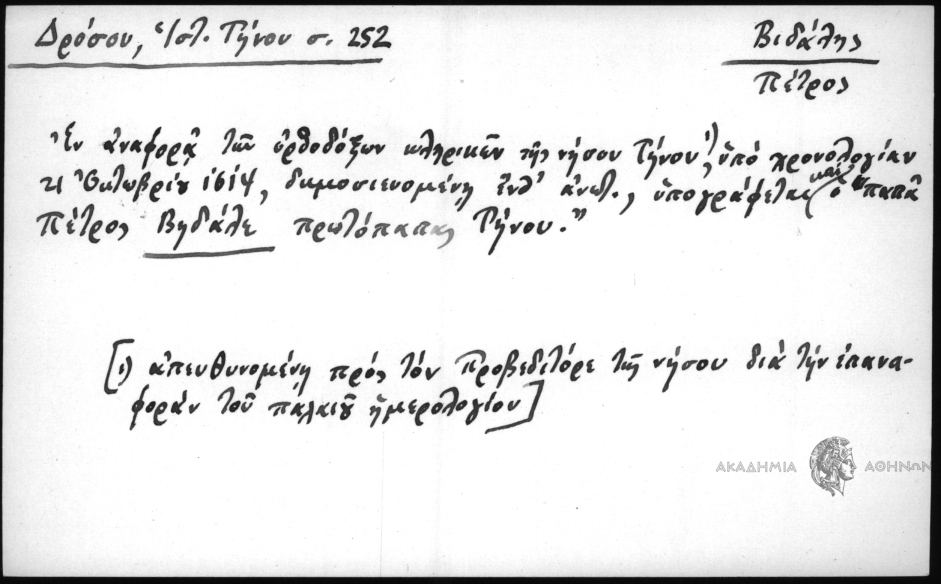 Δρόσου, Ἱστ. Τήνου σ. 252
Βιδάλης
Πέτρος
Ἐν ἀναφορᾷ τῶν ὀρθοδόξων κληρικῶν τῆς νήσου Τήνου¹⁾, ὑπό χρονολογίαν
21 Ὀκτωβρίου 1614, δημοσιευομένῃ ἔνθ' ἀνωτ., ὑπογράφεται καί ὁ "παπᾶ
Πέτρος Βηδάλε πρωτόπαπας Τήνου."
[1) ἀπευθυνομένῃ πρός τόν Προβεδιτόρε τῆς νήσου διά τήν ἐπανα-
φοράν τοῦ παλαιοῦ ἡμερολογίου]
ΑΚΑΔΗΜΙΑ ΑΘΗΝΩΝ